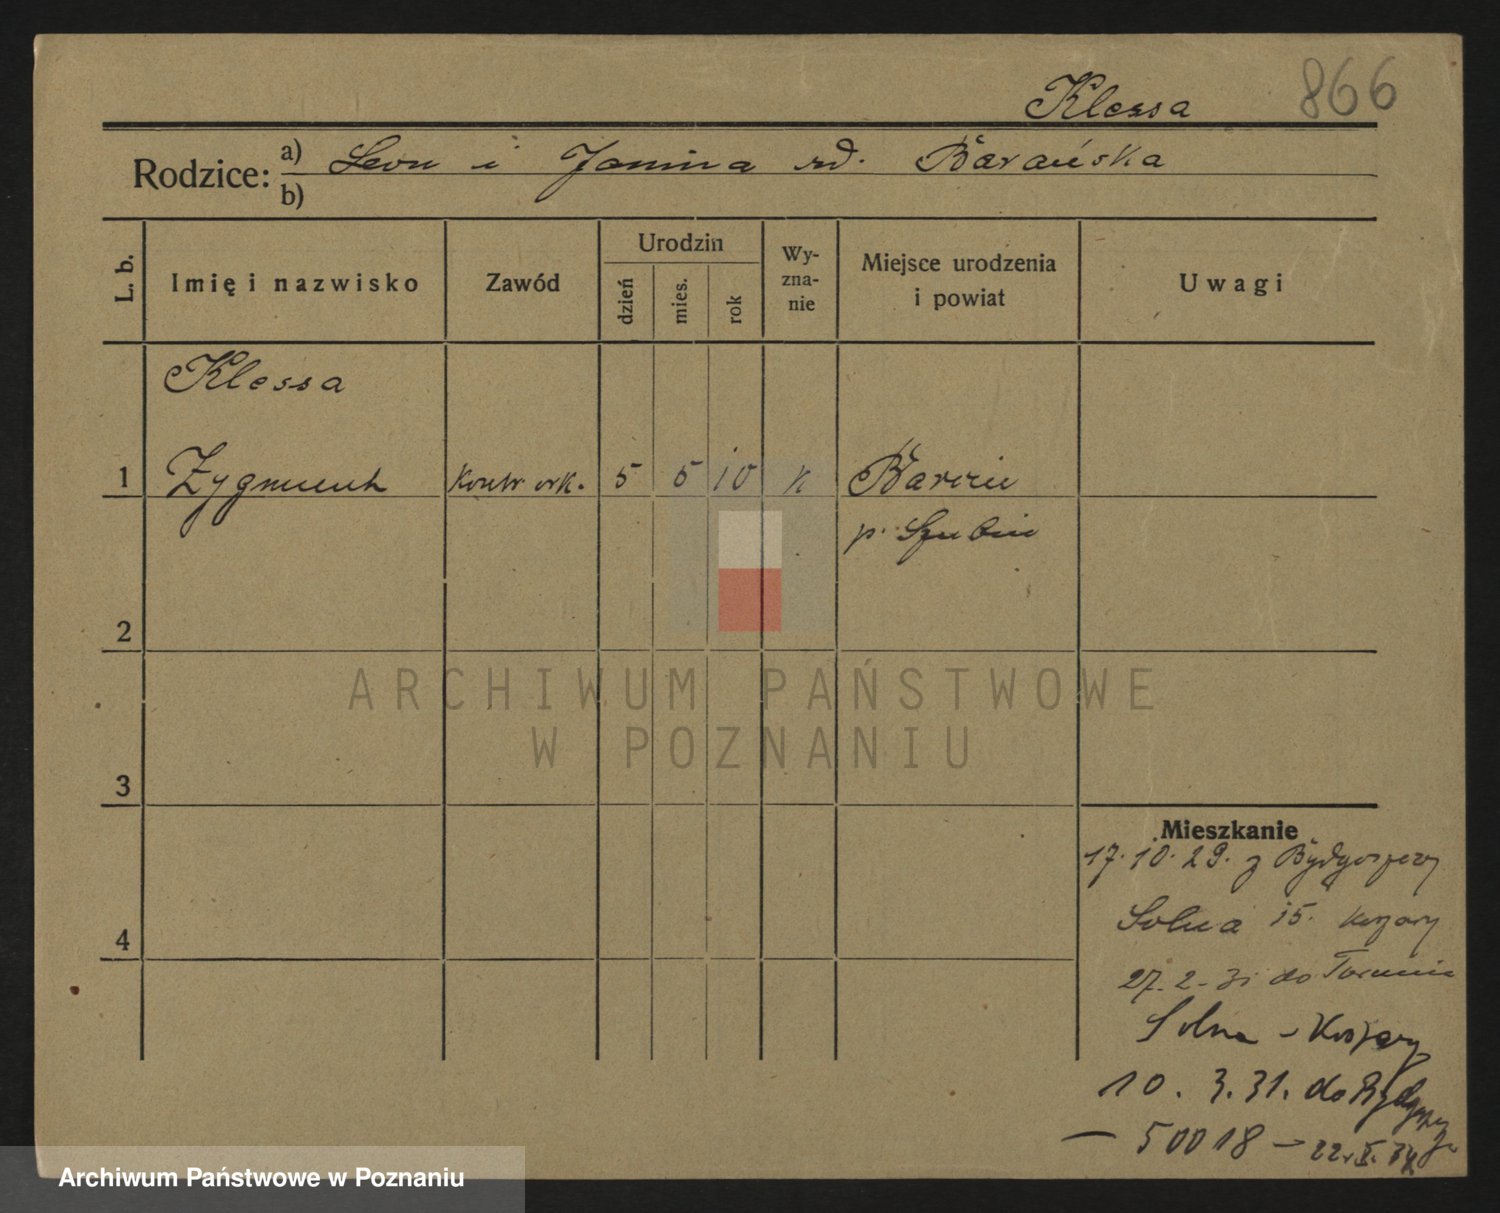 Klessa 866
Rodzice: a) Leon i Janina rd. Barańska
b)
L. b. Imię i nazwisko Zawód Urodzin dzień mies. rok Wy-zna-nie Miejsce urodzenia i powiat Uwagi
Klessa
1 Zygmunt kontr. ork. 5 5 10 k Barcin
p. Szubin
2
ARCHIWUM PAŃSTWOWE
W POZNANIU
3
4
Mieszkanie
17.10.29. z Bydgoszczy
Solna 15. koszary
27.2.31 do Torunia
Solna - Koszary
10.3.31. do Bydgoszczy
— 50018 — 22.X.
Archiwum Państwowe w Poznaniu